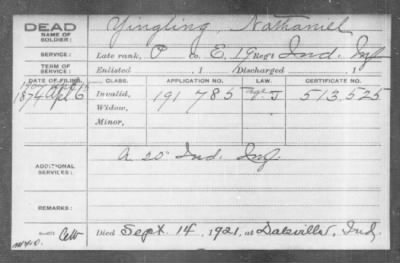 DEAD
NAME OF SOLDIER: Yingling, Nathaniel
SERVICE: Late rank, P Co. E, 19 Reg't Ind. Inf
TERM OF SERVICE: Enlisted , 1 Discharged , 1
DATE OF FILING. CLASS. APPLICATION NO. LAW. CERTIFICATE NO.
1874 Apl 6 Invalid, 191 785 513,525
Widow,
Minor,
ADDITIONAL SERVICES: A 20" Ind. Inf.
REMARKS:
Died Sept. 14, 1921, at Daleville, Ind.